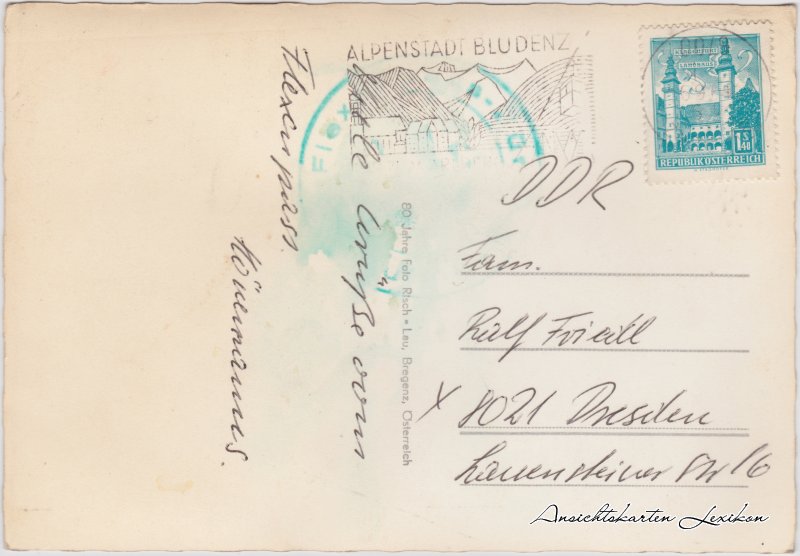 ALPENSTADT BLUDENZ
KLAGENFURT
LANDHAUS
1.S 40
REPUBLIK ÖSTERREICH
Flex
DDR
Fam.
Ralf Friedl
X 8021 Dresden
Lauensteiner Str 16
80 Jahre Foto Risch = Lau, Bregenz, Österreich
Grüße vom
Flexenpass.
Ansichtskarten Lexikon